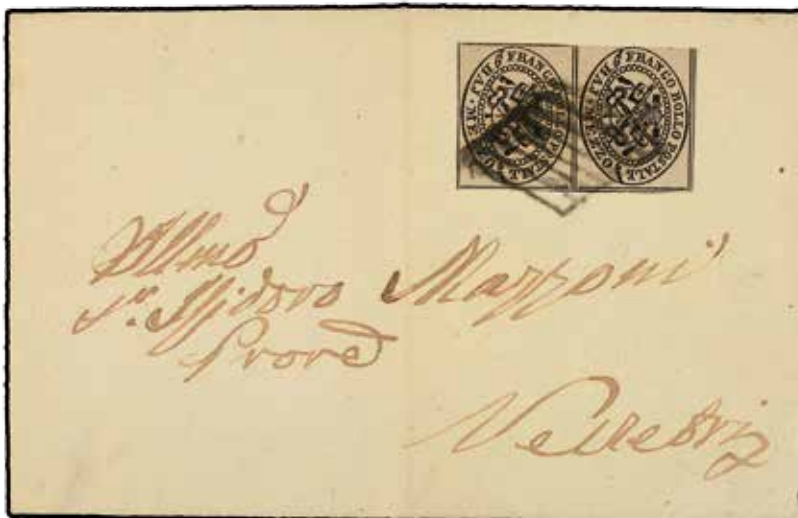 FRANCO BOLLO POSTALE MEZZO BAJ
FRANCO BOLLO POSTALE MEZZO BAJ
Illmo
Sr. Isidoro Mazzoni
Velletri